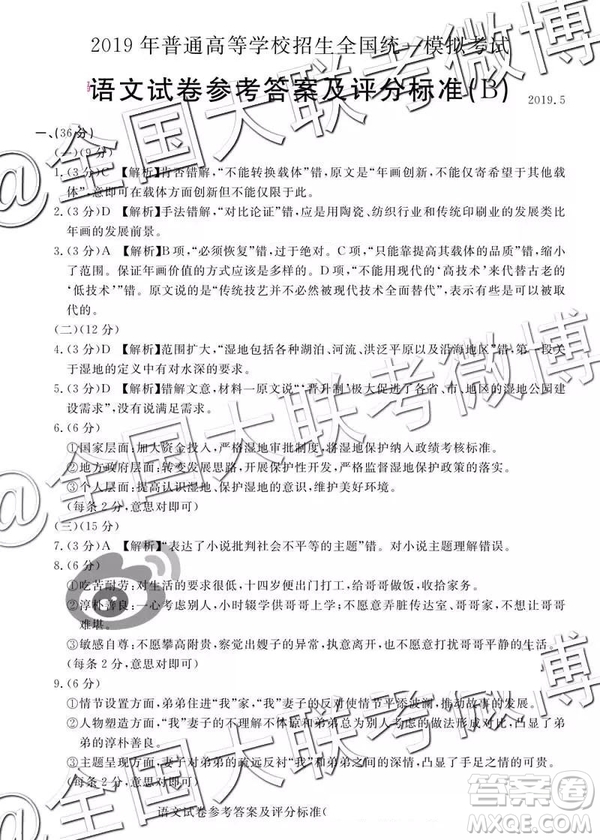 2019年普通高等学校招生全国统一模拟考试
语文试卷参考答案及评分标准(B)
2019.5
一、(36分)
(一)(9分)
1.(3分)C 【解析】肯否错解,“不能转换载体”错,原文是“年画创新,不能仅寄希望于其他载
体”,意即可在载体方面创新但不能仅限于此。
2.(3分)D 【解析】手法错解,“对比论证”错,应是用陶瓷、纺织行业和传统印刷业的发展类比
年画的发展前景。
3.(3分)A 【解析】B项,“必须恢复”错,过于绝对。C项,“只能靠提高其载体的品质”错,缩小
了范围。保证年画价值的方式应该是多样的。D项,“不能用现代的‘高技术’来代替古老的
‘低技术’”错。原文说的是“传统技艺并不必然被现代技术全面替代”,表示有些是可以被替
代的。
(二)(12分)
4.(3分)D 【解析】范围扩大,“湿地包括各种湖泊、河流、洪泛平原以及沿海地区”错,第一段关
于湿地的定义中有对水深的要求。
5.(3分)D 【解析】错解文意,材料一原文说“‘晋升制’极大促进了各省、市、地区的湿地公园建
设需求”,没有说满足需求。
6.(6分)
①国家层面:加大资金投入,严格湿地审批制度,将湿地保护纳入政绩考核标准。
②地方政府层面:转变发展思路,开展生态保护,严格监督湿地保护的实施。
③个人层面:提高认识湿地、保护湿地的意识,维护美好环境。
(每条2分,意思对即可)
(三)(15分)
7.(3分)A 【解析】“表达了小说批判社会不平等的主题”错。对小说主题理解错误。
8.(6分)
①吃苦耐劳:对生活的要求很低,十四岁便出门打工,给哥哥做饭,收拾家务。
②淳朴善良:一心考虑别人,小时辍学供哥哥上学;不愿意弄脏传达室、哥哥家,不愿让哥哥
难堪。
③敏感自尊:不愿攀高附贵,察觉出嫂子的异常,执意离开,不愿打扰哥哥平静的生活。
(每条2分,意思对即可)
9.(6分)
①情节设置方面,弟弟住进“我”家,“我”妻子的不快反应使情节平添波澜,推动情节发展。
②人物塑造方面,“我”妻子的做法和弟弟一心为哥哥考虑的做法形成对比,凸显了弟
弟的淳朴善良。
③主题呈现方面,妻子对弟弟的疏远反衬“我”与弟弟的感情之深,凸显了手足之情的可贵。
(每条2分,意思对即可)
语文试卷参考答案及评分标准(
@全国大联考微博
@全国大联考微博
@全国大联考微博
答案圈